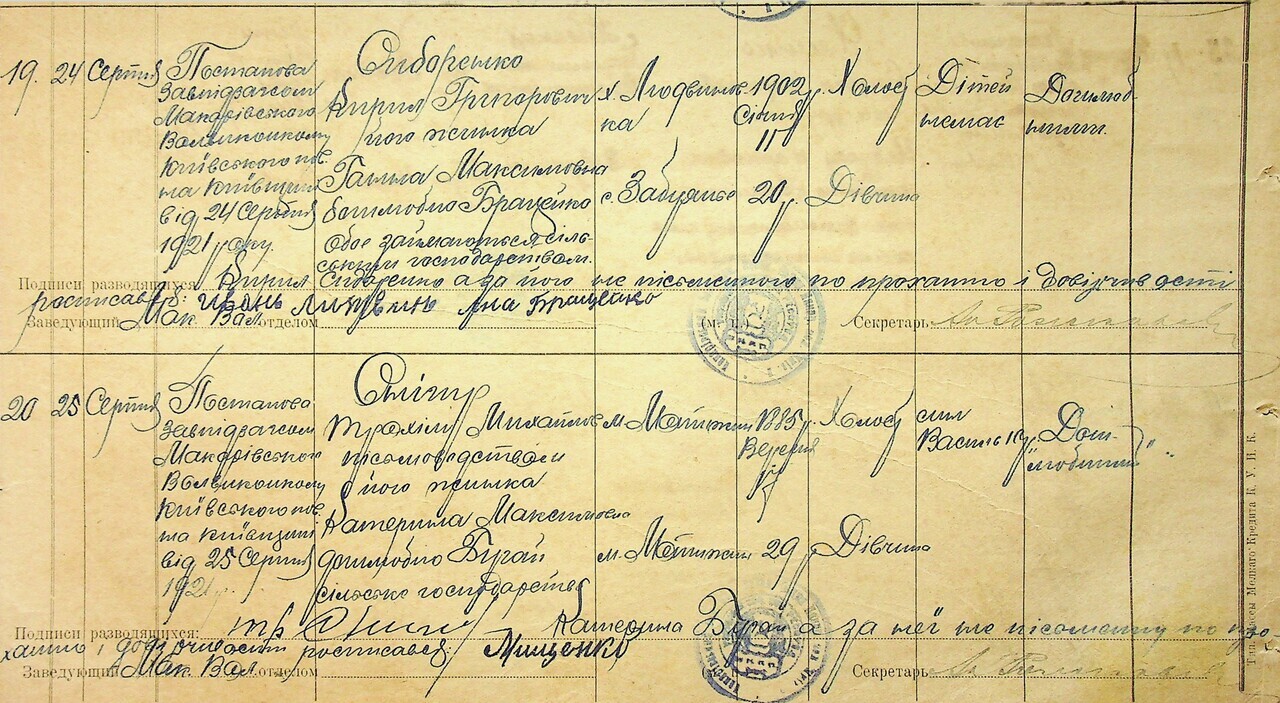 19. 24 Серпня
Постанова
Завпідзагсом
Макарівського
Волвиконкому
Київського пов.
на Київщині
від 24 Серпня
1921 року.
Сидоренко
Кирил Григорович
його жінка
Ганна Максимовна
дошлюбно Браценко
Обоє займаються сіль-
ським господарством.
х. Людвинов-
ка
с. Забуянье
1902 р.
Січня
11
20 р.
Холост
Дівчина
Дітей
немає
Подписи разводящихся Кирил Сидоренко а за його не пісьменного по проханню і довірчивості
росписався: Иван Литвин Ана Браценко
Заведующий Мак. Вол. отделом (м. п.) Секретарь
20 25 Серпня
Постанова
Завпідзагсом
Макарівського
Волвиконкому
Київського пов.
на Київщині
від 25 Серпня
1921 р.
Снігир
Трохим Михайлов
пісьмоводством
його жінка
Катерина Максимовна
дошлюбно Бугай
сільське господарство
м. Мотижин
м. Мотижин
1885 р.
Вересня
17
29 р.
Холост
Дівчина
син
Василь 1 г.
Дош-
любний
Подписи разводящихся: Тр Снигир Катерина Бугай а за неї не пісьменну по про-
ханню і довірчивости росписався: Мищенко
Заведующий Мак. Вол. отделом Секретарь
Тип. Кассы Мелкаго Кредита К. У. И. К.